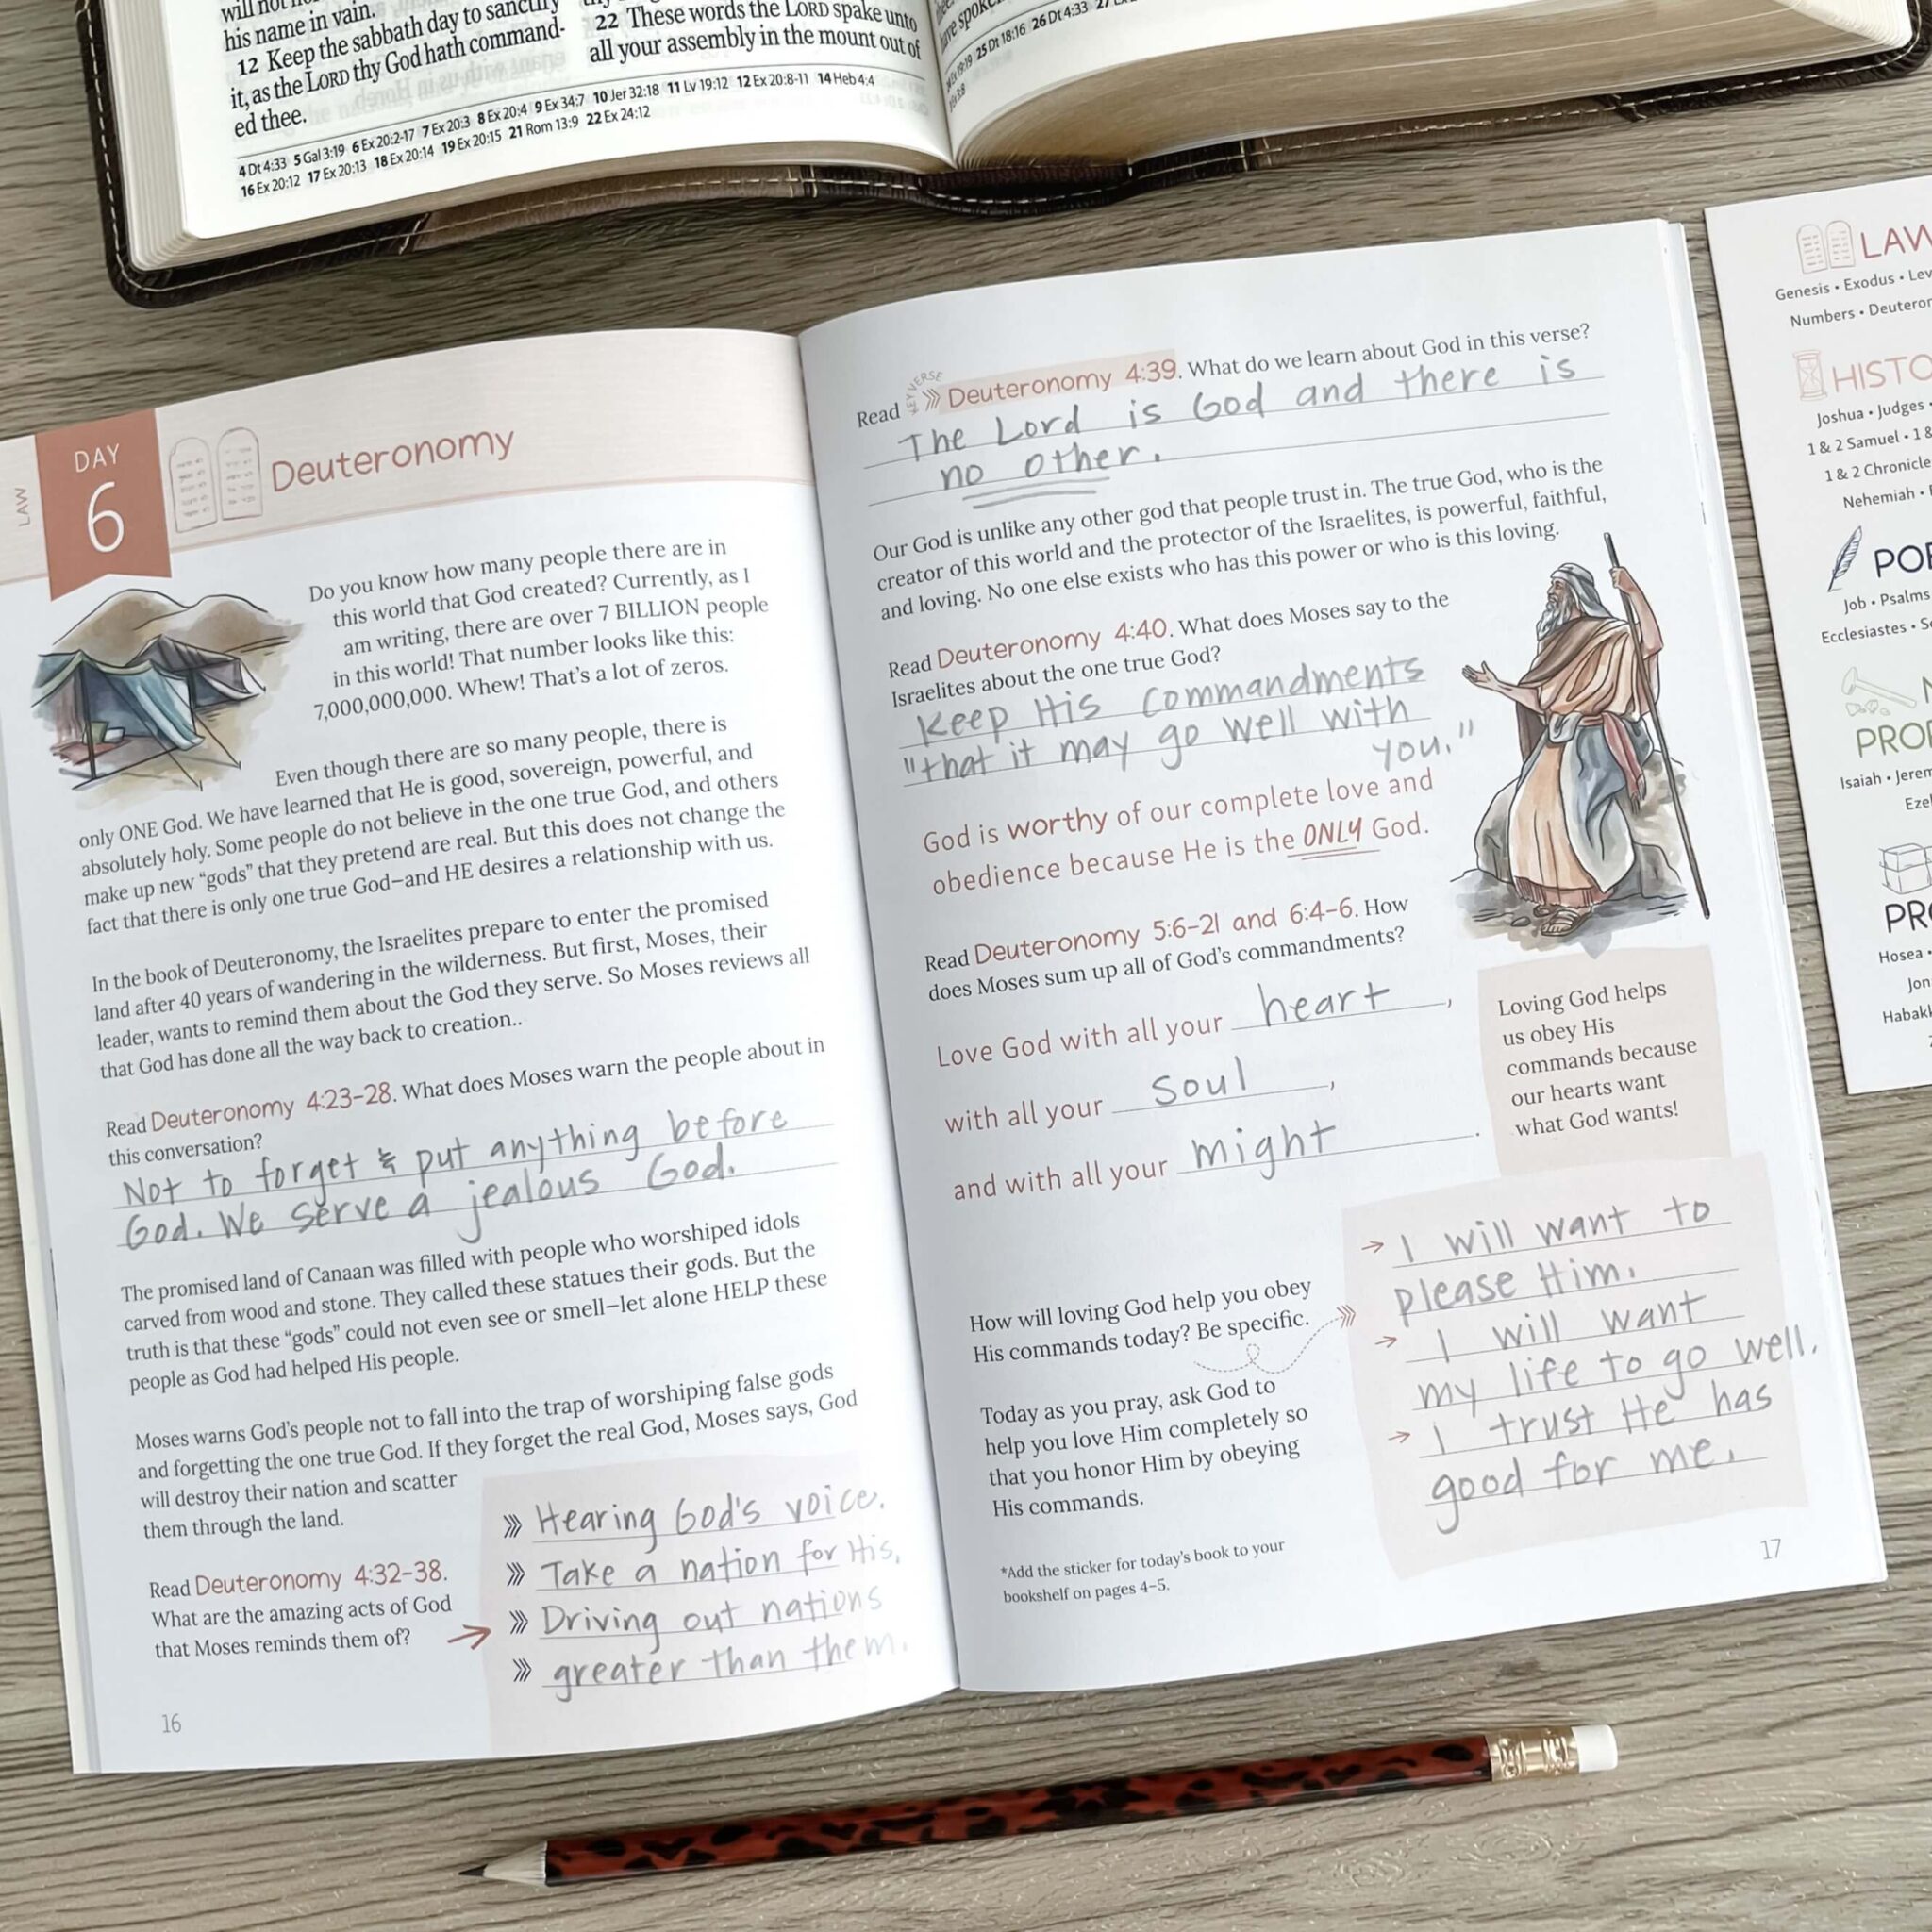 will not
his name in vain.
12 Keep the sabbath day to sanctify
it, as the LORD thy God hath command-
ed thee.
22 These words the LORD spake unto
all your assembly in the mount out of
4 Dt 4:33 5 Gal 3:19 6 Ex 20:2-17 7 Ex 20:3 8 Ex 20:4 9 Ex 34:7 10 Jer 32:18 11 Lv 19:12 12 Ex 20:8-11 14 Heb 4:4
16 Ex 20:12 17 Ex 20:13 18 Ex 20:14 19 Ex 20:15 21 Rom 13:9 22 Ex 24:12
have spoke
25 Dt 18:16 26 Dt 4:33
LAW
DAY
6
Deuteronomy
Do you know how many people there are in
this world that God created? Currently, as I
am writing, there are over 7 BILLION people
in this world! That number looks like this:
7,000,000,000. Whew! That's a lot of zeros.
Even though there are so many people, there is
only ONE God. We have learned that He is good, sovereign, powerful, and
absolutely holy. Some people do not believe in the one true God, and others
make up new “gods” that they pretend are real. But this does not change the
fact that there is only one true God—and HE desires a relationship with us.
In the book of Deuteronomy, the Israelites prepare to enter the promised
land after 40 years of wandering in the wilderness. But first, Moses, their
leader, wants to remind them about the God they serve. So Moses reviews all
that God has done all the way back to creation..
Read Deuteronomy 4:23-28. What does Moses warn the people about in
this conversation?
Not to forget & put anything before
God. We serve a jealous God.
The promised land of Canaan was filled with people who worshiped idols
carved from wood and stone. They called these statues their gods. But the
truth is that these “gods” could not even see or smell—let alone HELP these
people as God had helped His people.
Moses warns God's people not to fall into the trap of worshiping false gods
and forgetting the one true God. If they forget the real God, Moses says, God
will destroy their nation and scatter
them through the land.
Read Deuteronomy 4:32-38.
What are the amazing acts of God
that Moses reminds them of?
Hearing God's voice.
Take a nation for His.
Driving out nations
greater than them.
16
Read KEY VERSE Deuteronomy 4:39. What do we learn about God in this verse?
The Lord is God and there is
no other.
Our God is unlike any other god that people trust in. The true God, who is the
creator of this world and the protector of the Israelites, is powerful, faithful,
and loving. No one else exists who has this power or who is this loving.
Read Deuteronomy 4:40. What does Moses say to the
Israelites about the one true God?
Keep His commandments
"that it may go well with
you."
God is worthy of our complete love and
obedience because He is the ONLY God.
Read Deuteronomy 5:6-21 and 6:4-6. How
does Moses sum up all of God's commandments?
Love God with all your heart,
with all your soul,
and with all your might.
Loving God helps
us obey His
commands because
our hearts want
what God wants!
How will loving God help you obey
His commands today? Be specific.
→ I will want to
please Him.
→ I will want
my life to go well.
→ I trust He has
good for me.
Today as you pray, ask God to
help you love Him completely so
that you honor Him by obeying
His commands.
*Add the sticker for today's book to your
bookshelf on pages 4-5.
17
LAW
Genesis • Exodus • Lev
Numbers • Deuteron
HISTO
Joshua • Judges •
1 & 2 Samuel • 1 &
1 & 2 Chronicle
Nehemiah •
POE
Job • Psalms
Ecclesiastes • So
PRO
Isaiah • Jerem
Eze
PRO
Hosea •
Jon
Habakk